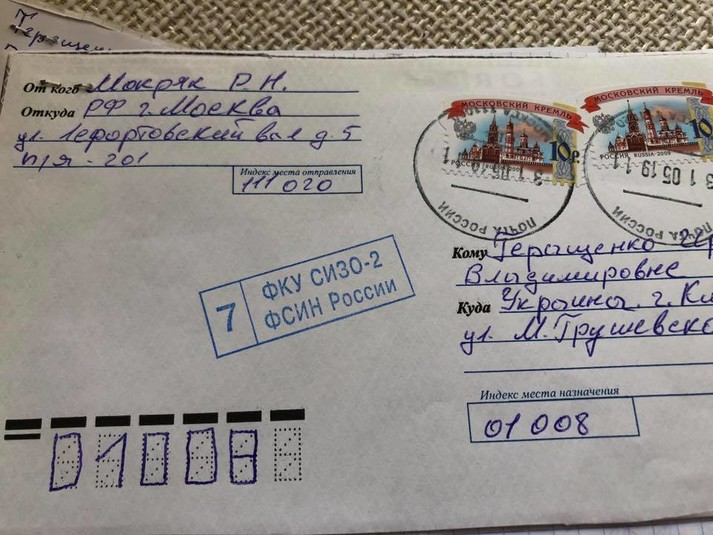 От кого Мокряк Р. Н.
Откуда РФ г. Москва
ул. Лефортовский вал д. 5
п/я - 201
Индекс места отправления
111 020
МОСКОВСКИЙ КРЕМЛЬ
10
РОССИЯ RUSSIA 2009
ПОЧТА РОССИИ
МОСКОВСКИЙ КРЕМЛЬ
10
РОССИЯ RUSSIA 2009
31 05 19 11
ПОЧТА РОССИИ
7 ФКУ СИЗО-2
ФСИН России
Кому Геращенко
Владимировне
Куда Украина. г. Ки
ул. М. Грушевско
Индекс места назначения
01 008
01008